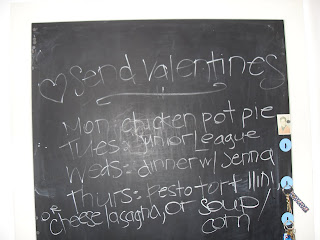 ♡ send valentines
Mon: chicken pot pie
Tues: Junior League
Weds: dinner w/ Jenna
Thurs: Pesto tortllini,
or cheese lasagna, or soup/
corn